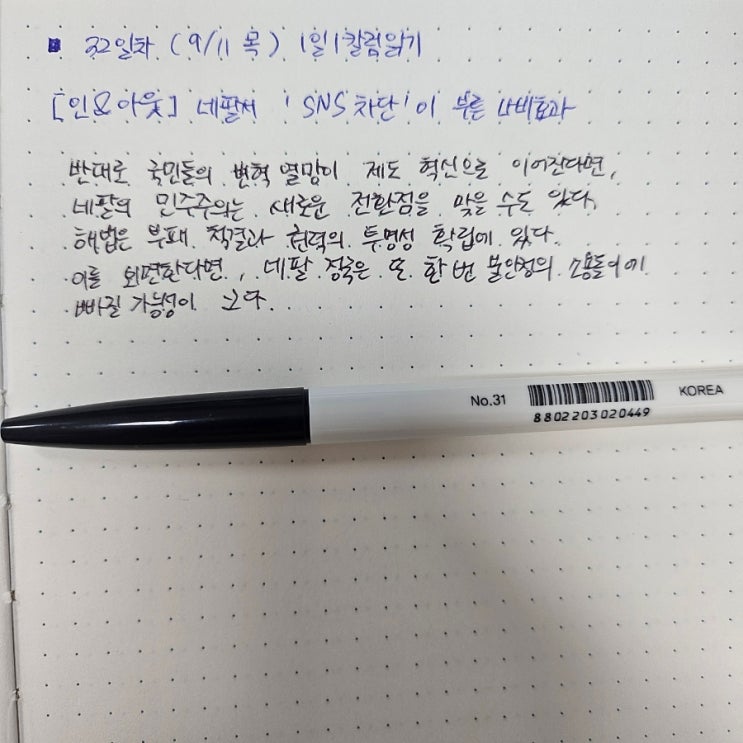 ■ 32일차 (9/11 목) 1일1칼럼읽기
[인&아웃] 네팔서 'SNS 차단'이 부른 나비효과
반대로 국민들의 변혁 열망이 제도 혁신으로 이어진다면,
네팔의 민주주의는 새로운 전환점을 맞을 수도 있다.
해법은 부패 척결과 권력의 투명성 확립에 있다.
이를 외면한다면, 네팔 정국은 또 한번 불안정의 소용돌이에
빠질 가능성이 크다.
No.31
8802203020449
KOREA